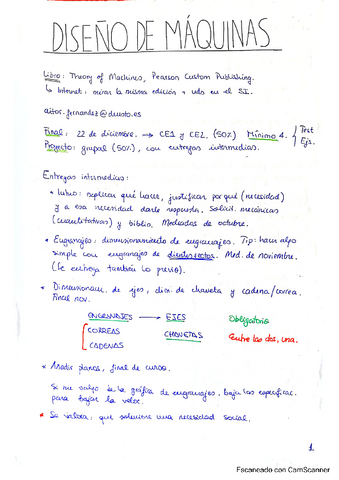 DISEÑO DE MÁQUINAS
Libro: Theory of Machines, Pearson Custom Publishing.
↳ Internet: mirar la misma edición + vdo en el SI.
aitor.fernandez@deusto.es
Final: 22 de diciembre. → CE1 y CE2. (50%) Mínimo 4. { Test
Ejs.
Proyecto: grupal (50%), con entregas intermedias.
Entregas intermedias:
* Intro: explicar qué hacer, justificar por qué (necesidad)
y a esa necesidad darle respuesta. Solicit. mecánicas
(cuantitativos) y biblio. Mediados de octubre.
* Engranajes: dimensionamiento de engranajes. Tip: hacer algo
simple con engranajes de dientes rectos. Med. de noviembre.
(Se entrega también lo previo).
* Dimensionam. de ejes, dim. de chaveta y cadena/correa.
Final nov.
ENGRANAJES → EJES Obligatorio
CORREAS CHAVETAS Entre las dos, una.
CADENAS
* Añadir planos, final de curso.
Si me salgo de la gráfica de engranajes, bajar las especificac.
para bajar la veloc.
* Se valora: que solucione una necesidad social.
1.
Escaneado con CamScanner